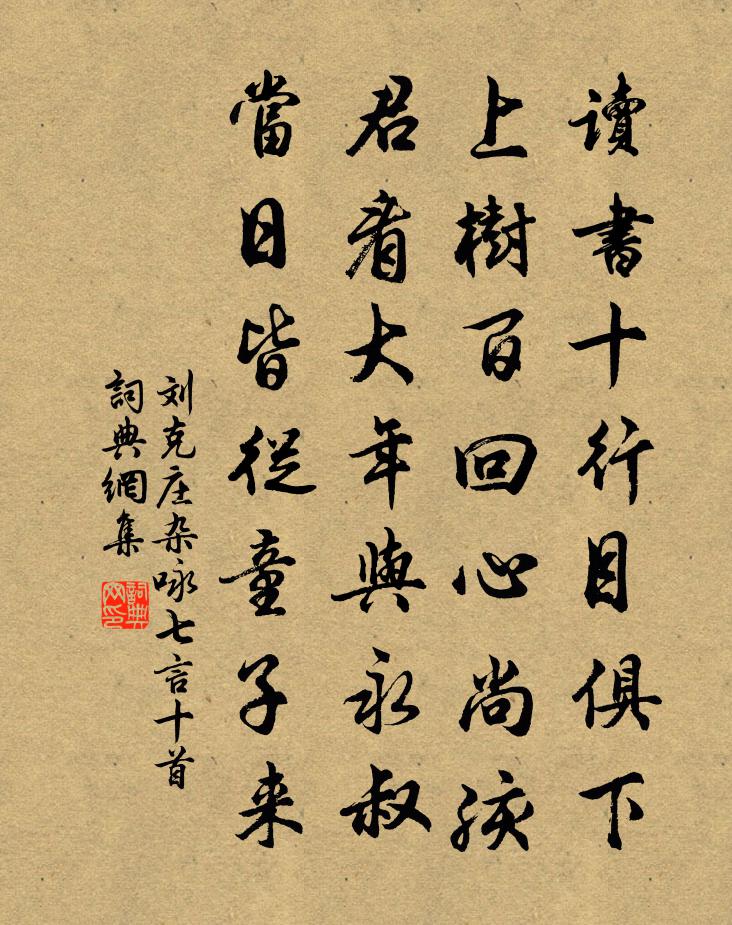 讀書十行目俱下
上樹百回心尚孩
君看大年與永叔
當日皆從童子来
刘克庄杂咏七言十首
詞典網集
詞典网印